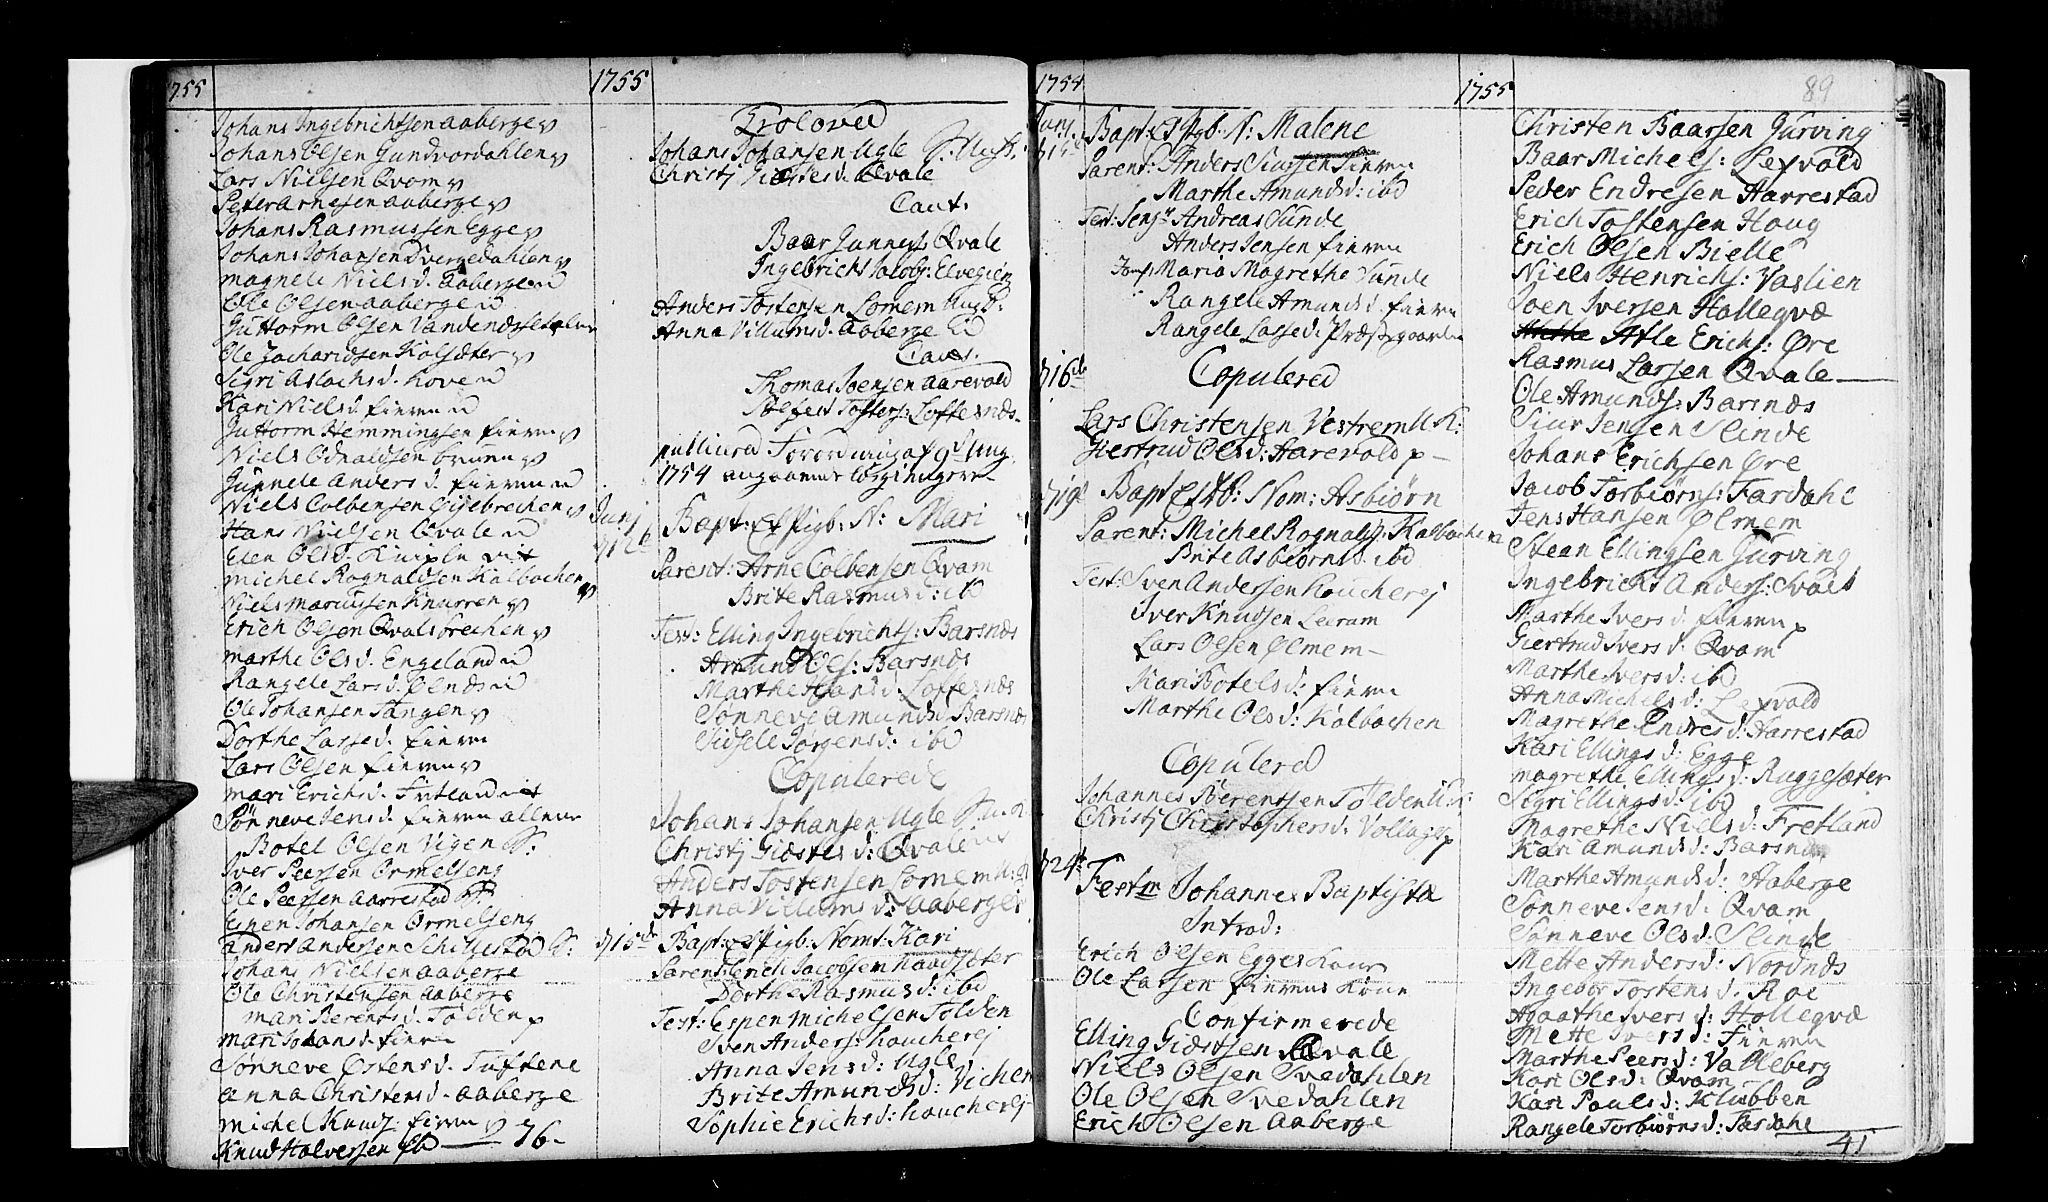 1755
Johans Ingebrichtsen Aaberge
Johans Olsen Gundvordahlen
Lars Nielsen Qvam
Peter Arnesen Aaberge
Johans Rasmussen Egge
Johans Johansen Dvergedahlen
Magnele Nielsd. Aaberge
Ole Olsen Aaberge
Guttorm Olsen
Ole Zachariasen Kalsæter
Sigri Aslachsd. Hove
Kari Nielsd. fieren
Guttorm Hemmingsen fieren
Niels Odnaldsen
Gunnele Andersd. fieren
Niels Colbensen Gijlebrechen
Hans Nielsen Qvale
Elen Olsd.
Michel Rognaldsen Kalbachen
Niels Knurren
Erich Olsen Qvalsbrechen
Marthe Olsd. Engeland
Rangele Larsd. Ølnæs
Ole Johansen Tangen
Dorthe Larsed. fieren
Lars Olsen fieren
Mari Erichsd. Fretland
Sønneve Jensd. fieren
Botel Olsen Vigen
Iver Peersen Ormelseng
Ole Peersen Aarrestad
Espen Johansen Ormelseng
Anders Andersen
Johans Nielsen Aaberge
Ole Christensen Aaberge
Mari Berentsd. Tolden
Mari Johansd. fieren
Sønneve Østensd. Tuftene
Anna Christensd. Aaberge
Michel Knudz. fieren
Knud Halversen ibd 76.
1755
Troloved
Johans Johansen Ugle
Christj Giæstesd. Qvale
Caut.
Baar Qvale
Ingebricht Jacobs: Elvegien
Anders Tostensen Lomem
Anna Villumsd. Aaberge
Caut.
Thomas Joensen Aarevold
Tostens: Loftesnæs.
publicered Forordning af 9de Aug.
1754
Junj
d 12te
Bapt: Et Pigb: N: Mari
Parent: Arne Colbensen Qvam
Brite Rasmusd: ibd
Test: Elling Ingebrichts: Barsnæs
Amund Ols: Barsnæs
Marthe Hansd. Loftesnæs
Sønneve Amundsd. Barsnæs
Sidsele Jørgensd: ibd
Copulerede
Johans Johansen Ugle
Christj Giæstesd: Qvale
Anders Tostensen Lomem
Anna Villumsd: Aaberge
d 15de
Bapt: Et Pigb: Nomt: Kari
Parent: Erich Jacobsen
Dorthe Rasmusd: ibd
Test: Espen Michelsen Tolden
Sven Anders: Loucherej
Anna Jensd: Ugle
Brite Amundsd: Vichen
Sophie Erichsd: Loucherej
1754
Junj
Bapt: Et Pigb: N: Malene
Parent: Anders Siursen Fieren
Marthe Amundsd: ibd
Test: Andreas Sunde
Anders Jensen fieren
Jomf. Maria Magrethe Sunde
Rangele Amundsd. fieren
Rangele Larsed. Præstegaarden
d 16de
Copulered
Lars Christensen Vestrem
Giertrud Olsd: Aarevold
d 19de
Bapt Et Db: Nom: Asbiørn
Parent: Michel Rognalds: Kalbachen
Brite Asbiørnsd: ibd
Test: Sven Andersen Loucherej
Iver Knudsen Leiram
Lars Olsen Ølmem
Kari Botelsd: fieren
Marthe Olsd: Kalbachen
Copulered
Johannes Bærentsen Tolden
Christj Christophersd.
d 24de
Festm Johannes Baptista
Introd:
Erich Olsen Egges Kone
Ole Larsen fierens Kone
Confirmerede
Elling Giæstsen Qvale
Niels Olsen Svedahlen
Ole Olsen Svedahlen
Erich Olsen Aaberge
1755
89
Christen Baarsen Gurving
Baar Michels: Lexvold
Peder Endresen Harrestad
Erich Tostensen Haug
Erich Olsen Bielle
Niels Henrichs: Vaslien
Joen Iversen Hallegvæ
Atle Erichs: Øre
Rasmus Larsen Qvale
Ole Amunds: Barsnæs
Siur Jensen Slinde
Johans Erichsen Øre
Jacob Torbiørns: Fardahl
Jens Hansen Ølmem
Stean Ellingsen Gurving
Ingebricht Anders: Qvale
Marthe Iversd. fieren
Giertrud Iversd: Qvam
Marthe Iversd: ibd
Anna Michelsd: Lexvold
Magrethe Endresd: Harrestad
Kari Ellingsd: Egge
Magrethe Ellingsd: Ruggesæter
Sigri Ellingsd: ibd
Magrethe Nielsd: Fretland
Kari Amundsd: Barsnæs
Marthe Amundsd: Aaberge
Sønneve Jensd: Qvam
Sønneve Olsd: Slinde
Mette Andersd: Nordnæs
Ingebor Tostensd. Roe
Agaathe Iversd: Hollegvæ
Mette Iversd: Fieren
Marthe Peersd: Valleberg
Kari Olsd: Qvam
Kari Paulsd: Klubben
Rangele Torbiørnsd: Fardahl
41